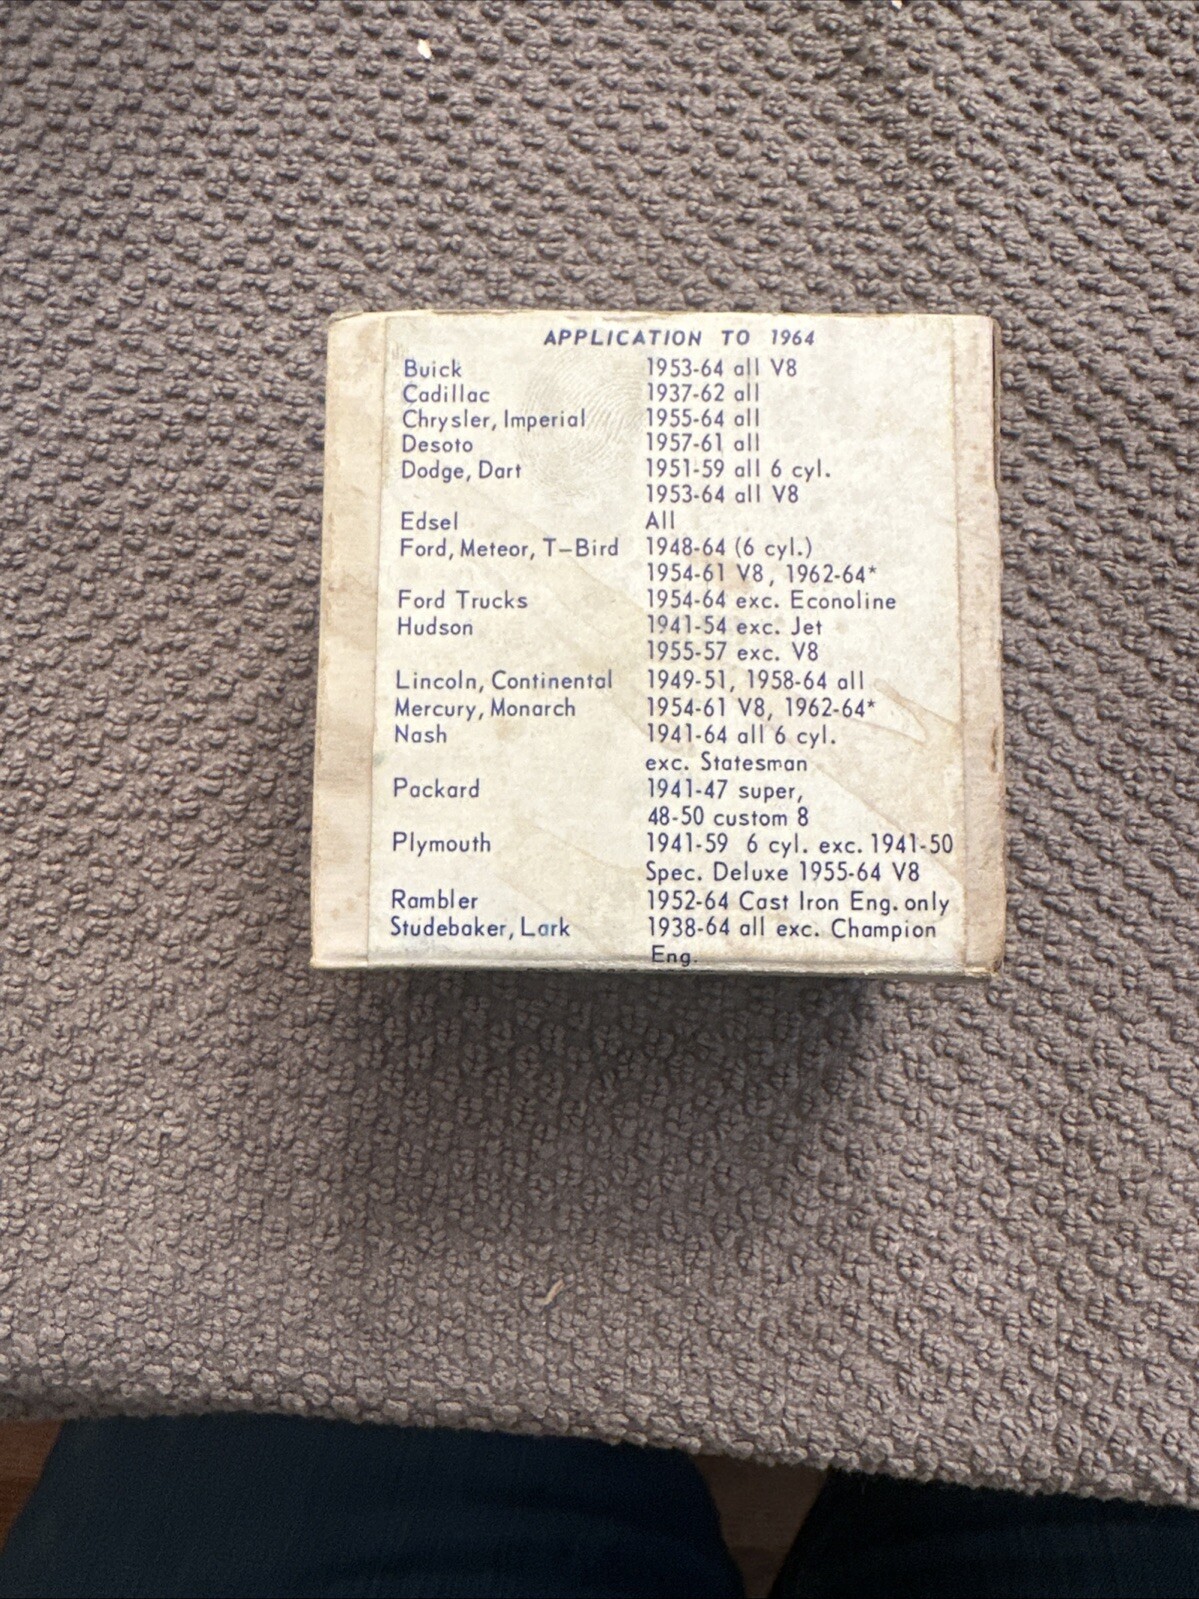 APPLICATION TO 1964
Buick 1953-64 all V8
Cadillac 1937-62 all
Chrysler, Imperial 1955-64 all
Desoto 1957-61 all
Dodge, Dart 1951-59 all 6 cyl.
1953-64 all V8
Edsel All
Ford, Meteor, T-Bird 1948-64 (6 cyl.)
1954-61 V8, 1962-64*
Ford Trucks 1954-64 exc. Econoline
Hudson 1941-54 exc. Jet
1955-57 exc. V8
Lincoln, Continental 1949-51, 1958-64 all
Mercury, Monarch 1954-61 V8, 1962-64*
Nash 1941-64 all 6 cyl.
exc. Statesman
Packard 1941-47 super,
48-50 custom 8
Plymouth 1941-59 6 cyl. exc. 1941-50
Spec. Deluxe 1955-64 V8
Rambler 1952-64 Cast Iron Eng. only
Studebaker, Lark 1938-64 all exc. Champion
Eng.